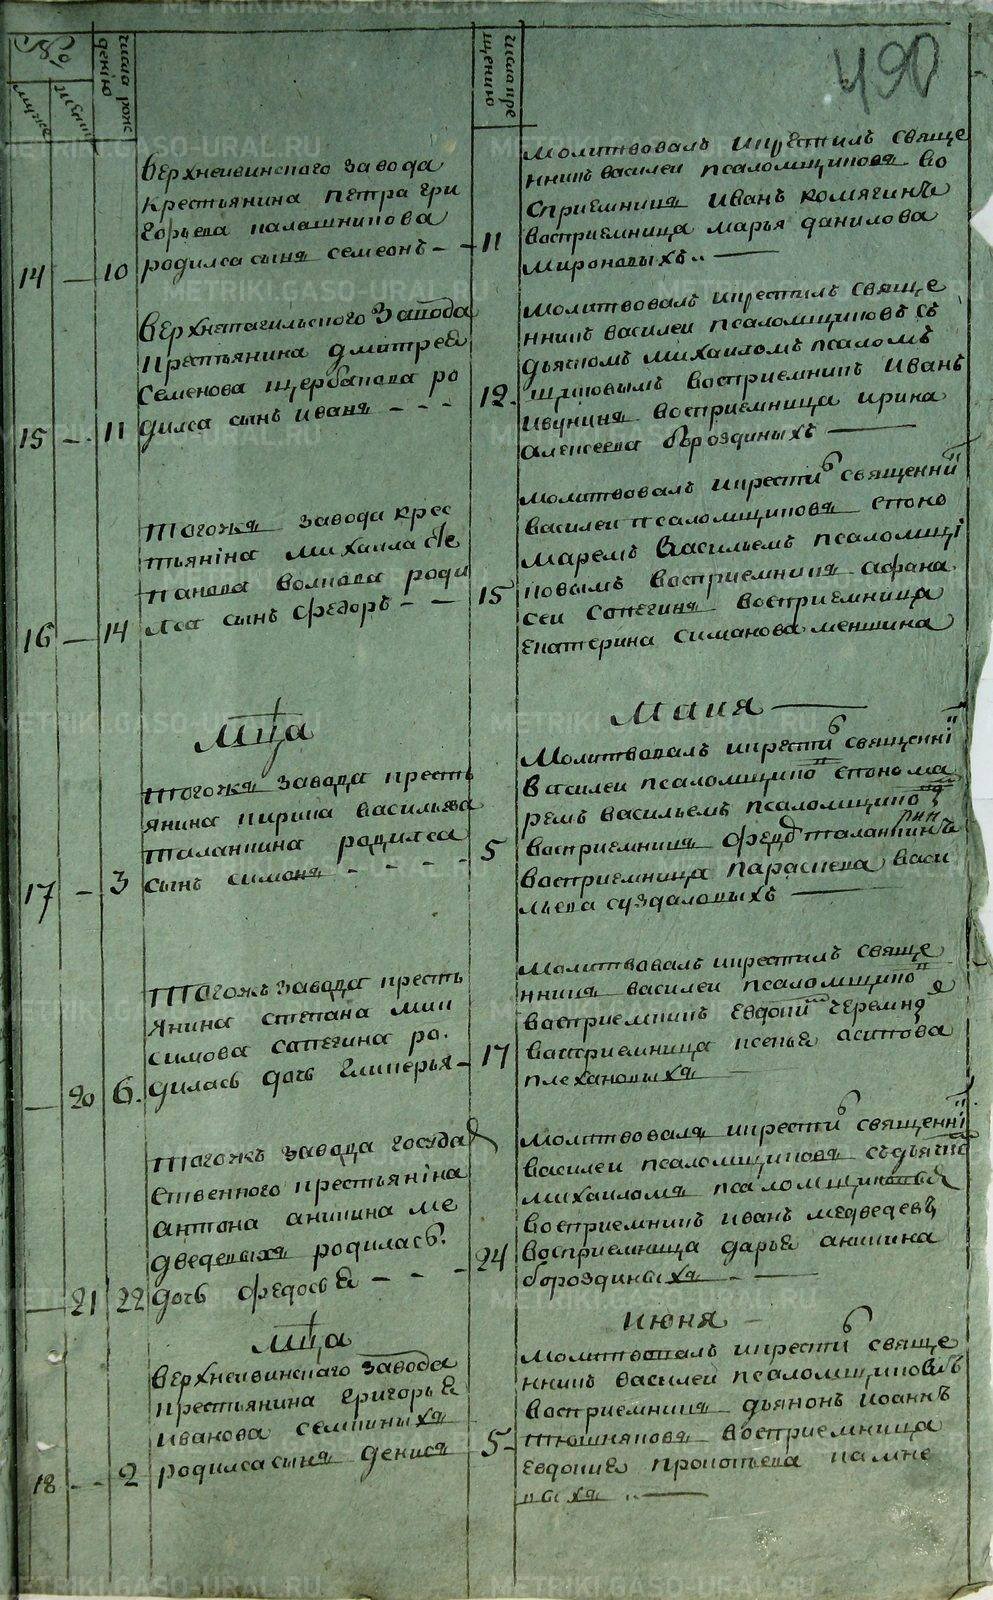 490
№
мужск
женск
числа рож
денiю
числа кре
щению
Верхнеивинского завода
крестьянина Петра Гри
горьева калашникова
14 — 10 родилса сынъ семеонъ - -
молитвовалъ икрестилъ свяще
нникъ василеи псаломщиковъ во
сприемникъ Иванъ комягинъ
11 восприемница марья данилова
мироновыхъ..
Верхнетагильского завода
крестьянина дмитреа
семенова щербакова ро
15 - - 11 дилса сынъ иванъ - - -
молитвовалъ икрестилъ свяще
нникъ василеи псаломщиковъ съ
дьячкомъ михаиломъ псалом
12. щиковымъ восприемникъ иванъ
восприемница ирина
алексеева бороздиныхъ
тогожъ завода крес
тьянiна михаила сте
панова волкова роди
16 — 14 лса сынъ федоръ - -
молитвовалъ икрестиⷧ священнⷩi
василеи псаломщиковъ споно
маремъ васильемъ псаломщi
15 ковымъ восприемникъ афана
сеи сапегинъ восприемница
екатерина симанова меншина
мⷭца
Маия
тогожъ завода кресть
янина кирила васильева
таланкина родилса
17 - 3 сынъ симонъ - - - -
молитвовалъ икрестиⷧ священнi
василеи псаломщико споно ма
ремъ васильемъ псаломщико
5 восприемникъ федоⷬ таланкинъ
восприемница параскева васи
льева суздаловыхъ
тогожъ завода кресть
янина степана мак
симова сапегина ро.
— 20 6. дилась дочь гликерья -
молитвовалъ икрестилъ свяще
нникъ василеи псаломщико
восприемникъ евдоки черемно
17 восприемница ксенья осипова
плехановыхъ
тогожъ завода госуда
ственного крестьянiна
антона аникина ме
дведевыхъ родилась.
— 21 22 дочь федосьа - - -
молитвовалъ икрестиⷧ священнi
василеи псаломщиковъ съдьячко
михаиломъ псаломщиковы
восприемникъ иванъ медведевъ
24 восприемница дарьа аникина
бороздиныхъ -
мⷭца
июня
Верхнеивинскаго завода
крестьянина григорьа
иванова семкиныхъ
18 - - 2 родилса сынъ денисъ
молитвовалъ икрестиⷧ свяще
нникъ василеи псаломщиковъ
восприемникъ дьяконъ иоаннъ
5- тюшняковъ восприемница
евдокиа прокопьева
выхъ ..